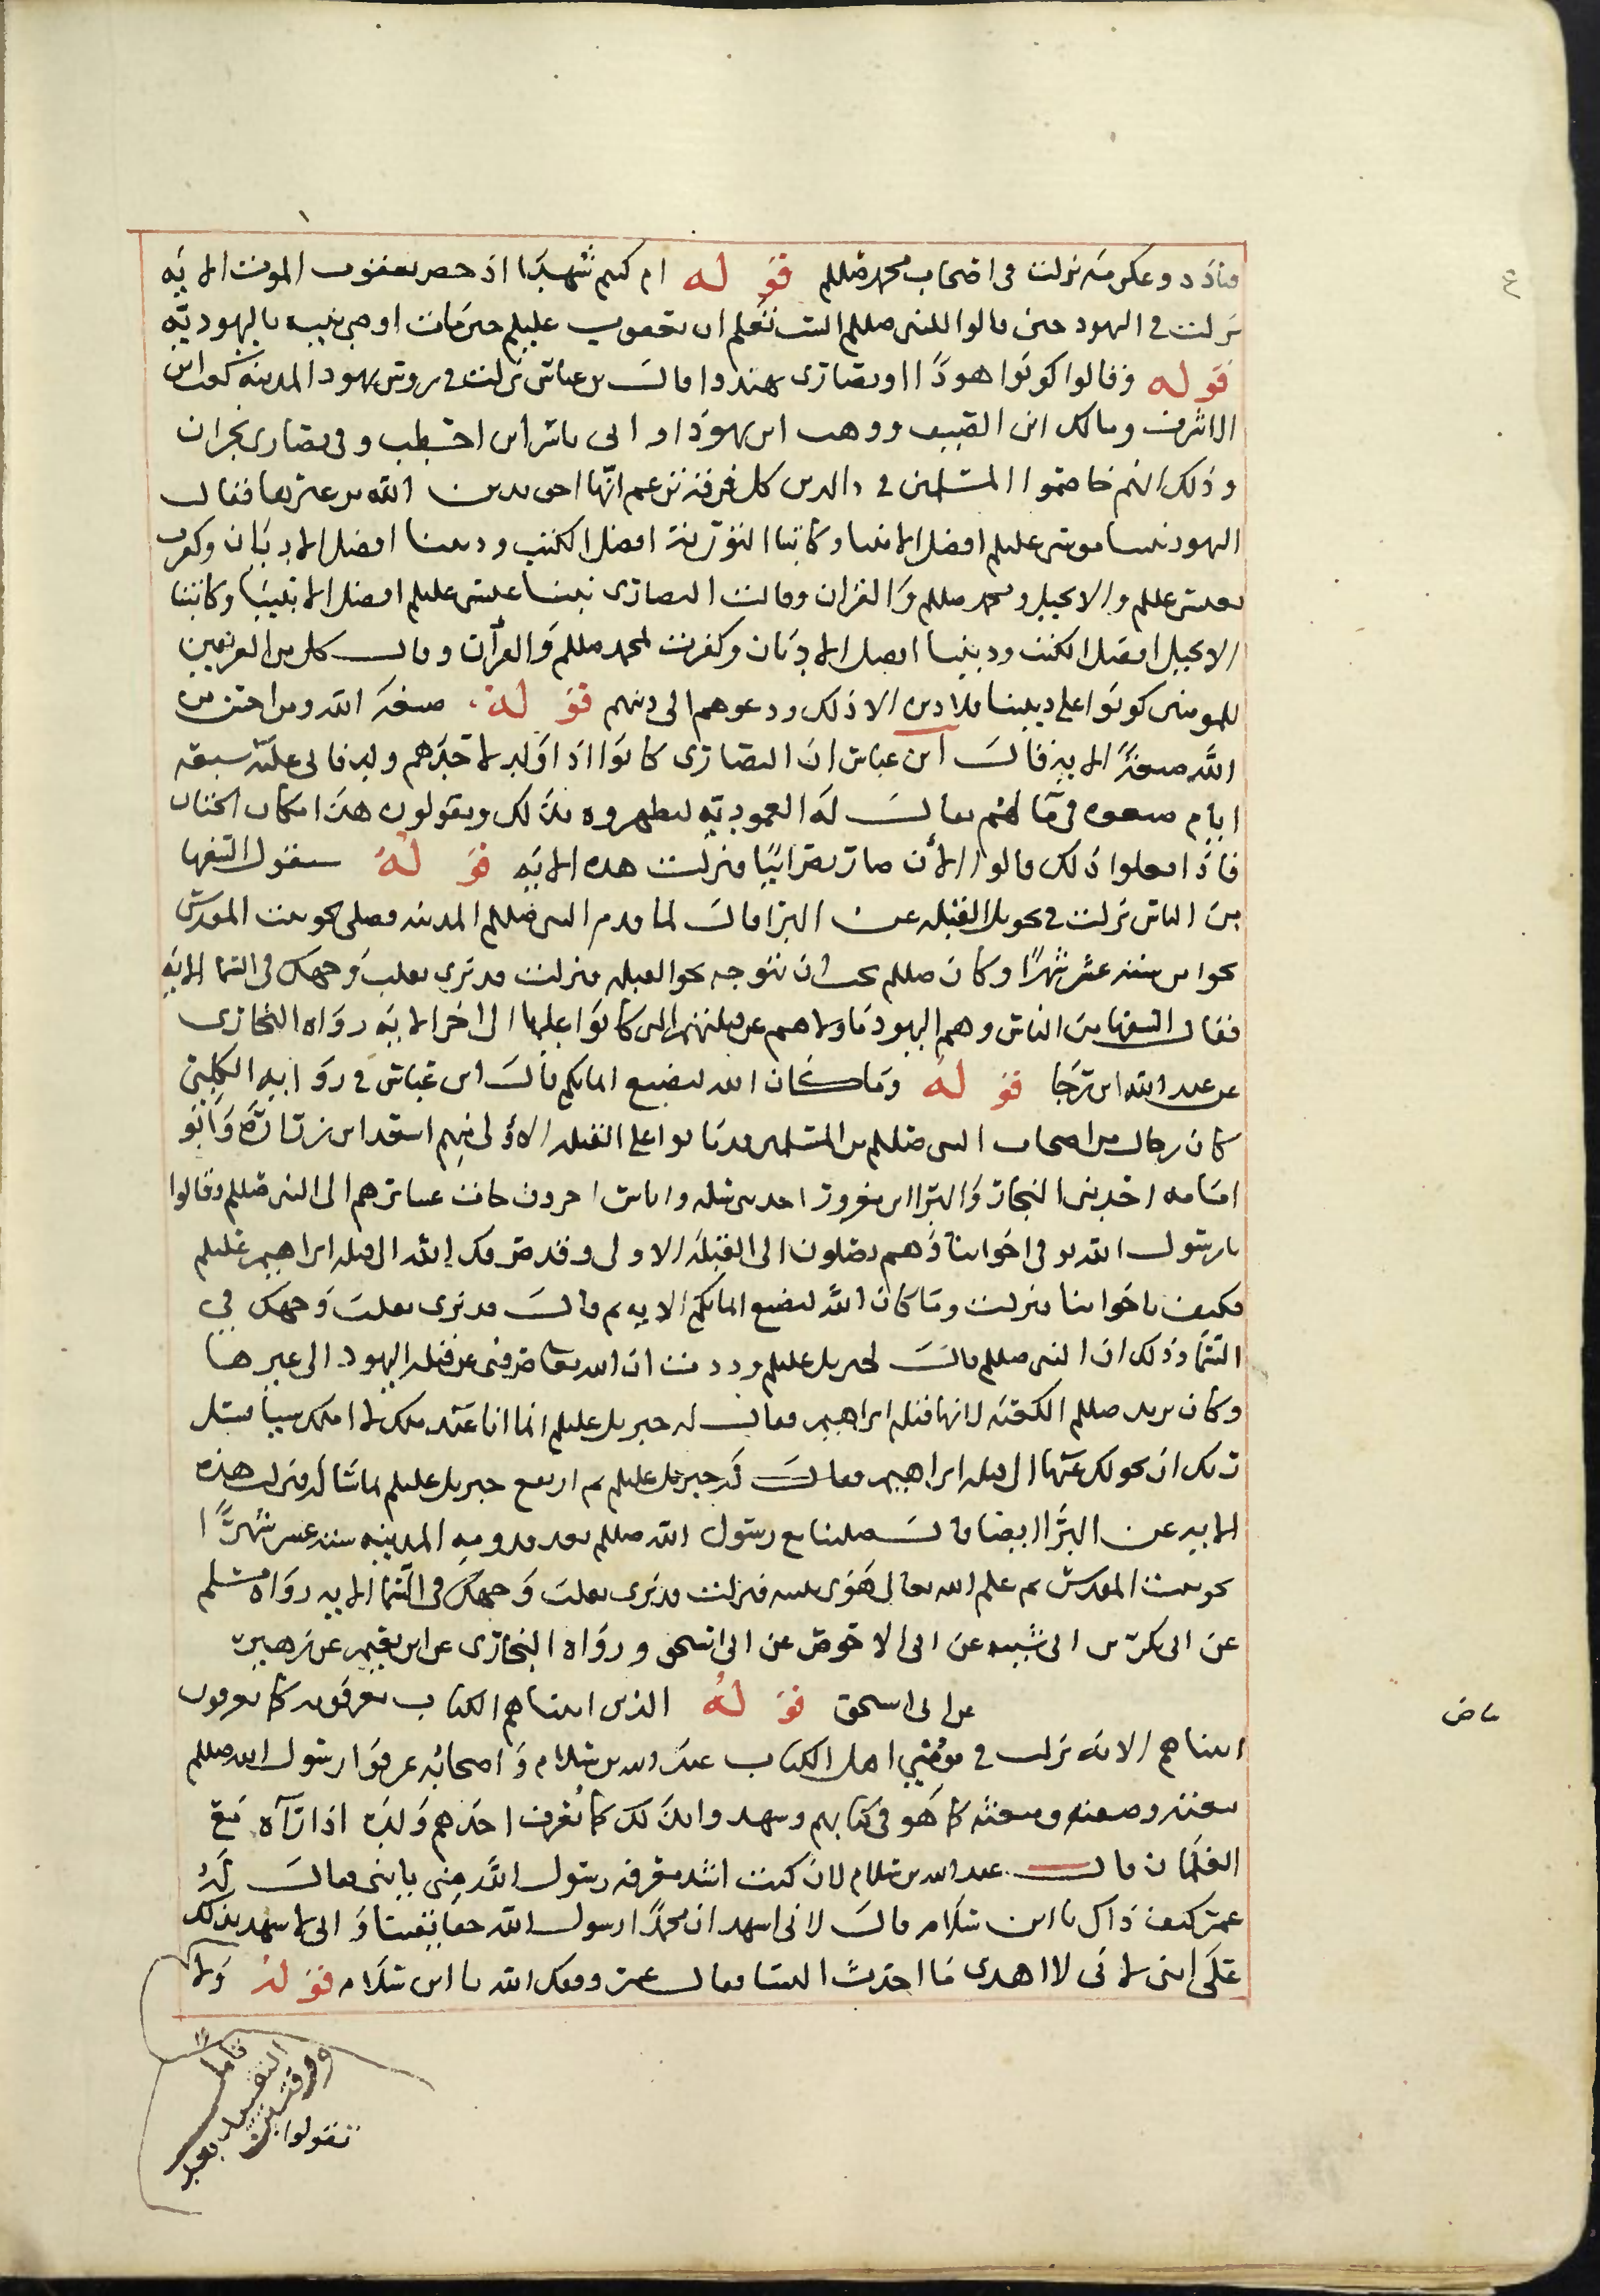 وقتادة وعكرمة نزلت في اصحاب محمد صللم قوله ام كنتم شهدا اذ حضر يعقوب الموت الاية
نزلت في اليهود حين قالوا للنبي صللم الست تعلم ان يعقوب عليلم حين مات اوصى بنيه باليهوديه
قوله وقالوا كونوا هودا او نصارى تهتدوا قال بن عباس نزلت في روس يهود المدينة كعب ابن
الاشرف ومالك ابن الضيف ووهب ابن يهودا وابي ياسر ابن اخطب وفي نصارى نجران
وذلك انهم خاصموا المسلمين في الدين كل فرقة تزعم انها احق بدين الله من غيرها فقال
اليهود نبينا موسى عليلم افضل الانبيا وكتابنا التورية افضل الكتب وديننا افضل الاديان وكفرت
بعيسى عليلم والانجيل ومحمد صللم والقران وقالت النصارى نبينا عيسى عليلم افضل الانبيا وكتابنا
الانجيل افضل الكتب وديننا افضل الاديان وكفرت بمحمد صللم والقرآن وقال كل من الفريقين
للمومنين كونوا على ديننا فلا دين الا ذلك ودعوهم الى دينهم قوله صبغة الله ومن احسن من
الله صبغة الاية قال ابن عباس ان النصارى كانوا اذا ولد لاحدهم ولد فاتى عليه سبعة
ايام صبغوه في ما لهم يقال له العمودية ليطهروه بذلك ويقولون هذا مكان الختان
فاذا فعلوا ذلك قالوا الأن صار نصرانيا فنزلت هذه الاية قوله سيقول السفها
من الناس نزلت في تحويل القبلة عن البرا قال لما قدم النبي صللم المدينة فصلى نحو بيت المقدس
نحوا من ستة عشر شهرا وكان صللم يحب ان يتوجه نحو القبلة فنزلت قد نرى تقلب وجهك في السما الاية
فقال السفها من الناس وهم اليهود ما ولاهم عن قبلتهم التي كانوا عليها الى اخر الاية رواه البخاري
عن عبد الله ابن رجا قوله وما كان الله ليضيع ايمانكم قال ابن عباس في رواية الكلبي
كان رجال من اصحاب النبي صللم من المسلمين قد ماتوا على القبلة الاولى منهم اسعد ابن زرارة وابو
امامه احد بني النجار والبرا ابن معرور احد بني سلمه واناس اخرون جات عشايرهم الى النبي صللم وقالوا
يا رسول الله توفي اخواننا وهم يصلون الى القبلة الاولى وقد صرفك الله الى قبلة ابراهيم عليلم
فكيف باخواننا فنزلت وما كان الله ليضيع ايمانكم الاية ثم قال قد نرى تقلب وجهك في
السما وذلك ان النبي صللم قال لجبريل عليلم وددت ان الله تعا صرفني عن قبلة اليهود الى غيرها
وكان يريد صللم الكعبة لانها قبلة ابراهيم فقال له جبريل عليلم انما انا عبد ملك لا املك شيا فسل
ربك ان يحولك عنها الى قبلة ابراهيم فقال له جبريل عليلم ثم ارتفع جبريل عليلم بما سال فنزلت هذه
الاية عن البرا ايضا قال صلينا مع رسول الله صللم بعد قدومه المدينة ستة عشر شهرا
نحو بيت المقدس ثم علم الله تعالى هوى نبيه فنزلت قد نرى تقلب وجهك في السما الاية رواه مسلم
عن ابي بكر بن ابي شيبه عن ابي الاحوص عن ابي اسحق ورواه البخاري عن ابي نعيم عن زهير
عن ابي اسحق قوله الذين اتيناهم الكتاب يعرفونه كما يعرفون
ابناهم الاية نزلت في مومني اهل الكتاب عبد الله بن سلام واصحابه عرفوا رسول الله صللم
بنعته وصفته وبعثته كما هو في كتابهم وشهدوا بذلك كما يعرف احدهم ولده اذا رآه مع
الغلمان قال عبد الله بن سلام لانا كنت اشد معرفة رسول الله مني بابني فقال له
عمر كيف ذاك يا ابن سلام قال لاني اشهد ان محمدا رسول الله حقا يقينا وانى لا اشهد بذلك
على ابني لاني لا ادري ما احدث النسا فقال عمر وفقك الله يا ابن سلام قوله ولا
تقولوا
ورقتين بعد